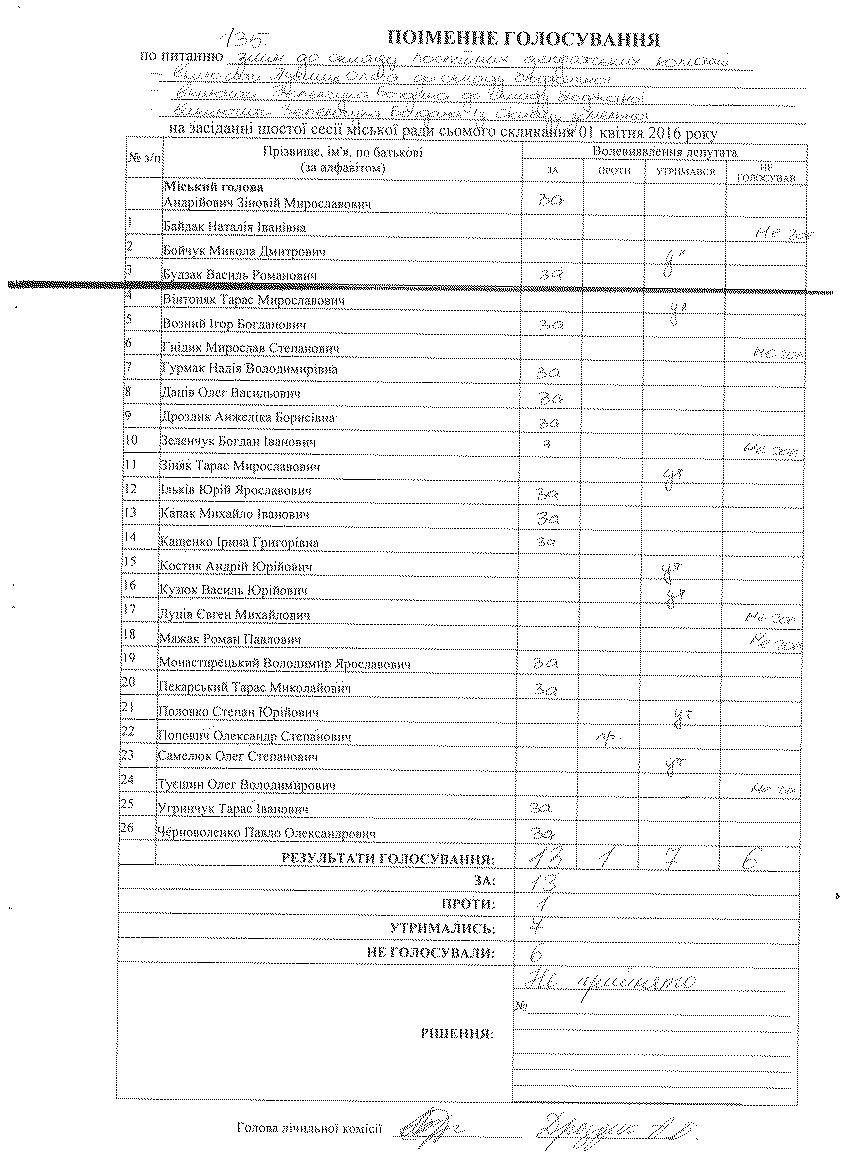 135.
ПОІМЕННЕ ГОЛОСУВАННЯ
по питанню змін до складу постійних депутатських комісій
на засіданні шостої сесії міської ради сьомого скликання 01 квітня 2016 року
№ з/п Прізвище, ім'я, по батькові (за алфавітом) Волевиявлення депутата
ЗА ПРОТИ УТРИМАВСЯ НЕ ГОЛОСУВАВ
Міський голова
Андрійович Зіновій Мирославович За
1 Байдак Наталія Іванівна Не гол
2 Бойчук Микола Дмитрович ут
3 Будзак Василь Романович За
4 Вінтоняк Тарас Мирославович ут
5 Возний Ігор Богданович За
6 Гнідик Мирослав Степанович Не гол
7 Гурмак Надія Володимирівна За
8 Даців Олег Васильович За
9 Дроздик Анжеліка Борисівна За
10 Зеленчук Богдан Іванович Не гол
11 Зіняк Тарас Мирославович ут
12 Ільків Юрій Ярославович За
13 Капак Михайло Іванович За
14 Кащенко Ірина Григорівна За
15 Костик Андрій Юрійович ут
16 Кузюк Василь Юрійович ут
17 Луців Євген Михайлович Не гол
18 Мажак Роман Павлович Не гол
19 Монастирецький Володимир Ярославович За
20 Пекарський Тарас Миколайович За
21 Половко Степан Юрійович ут
22 Попович Олександр Степанович пр.
23 Самелюк Олег Степанович ут
24 Туєшин Олег Володимирович Не гол
25 Угринчук Тарас Іванович За
26 Черноволенко Павло Олександрович За
РЕЗУЛЬТАТИ ГОЛОСУВАННЯ: 13 1 7 6
ЗА: 13
ПРОТИ: 1
УТРИМАЛИСЬ: 7
НЕ ГОЛОСУВАЛИ: 6
Не прийнято
№
РІШЕННЯ:
Голова лічильної комісії Дроздик А.Б.